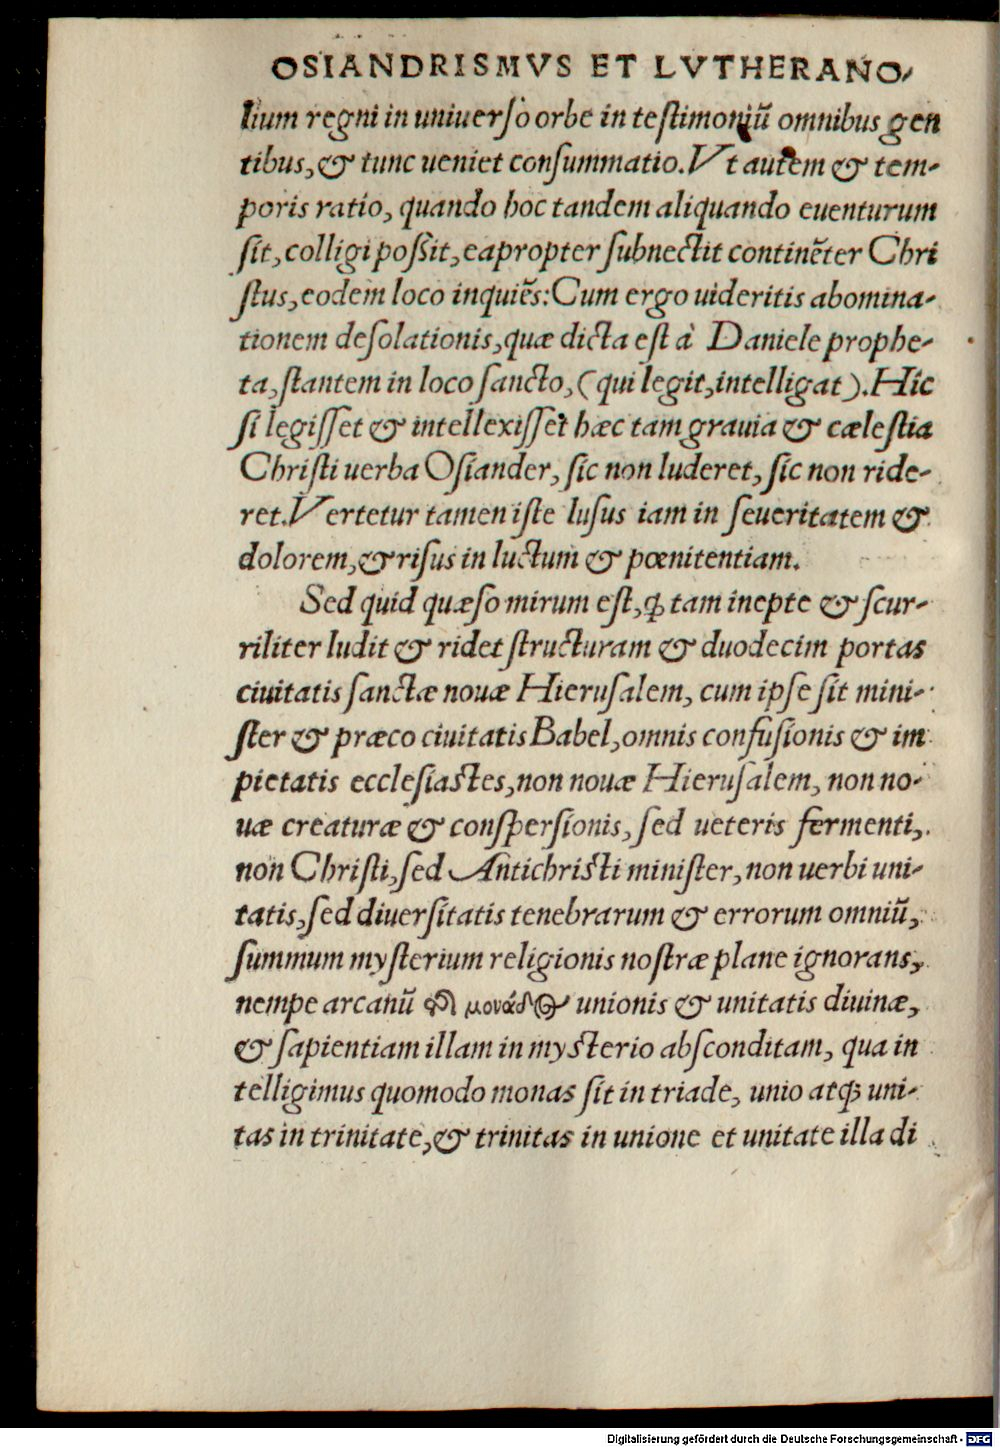 OSIANDRISMVS ET LVTHERANO-
lium regni in uniuerſo orbe in teſtimoniũ omnibus gen
tibus, & tunc ueniet conſummatio. Vt autem & tem-
poris ratio, quando hoc tandem aliquando euenturum
ſit, colligi poßit, eapropter ſubnectit continẽter Chri
ſtus, eodem loco inquiẽs: Cum ergo uideritis abomina-
tionem deſolationis, quæ dicta eſt à Daniele prophe-
ta, ſtantem in loco ſancto, (qui legit, intelligat). Hîc
ſi legiſſet & intellexiſſet hæc tam grauia & cæleſtia
Chriſti uerba Oſiander, ſic non luderet, ſic non ride-
ret. Vertetur tamen iſte luſus iam in ſeueritatem &
dolorem, & riſus in luctum & pœnitentiam.
Sed quid quæſo mirum eſt, ꝙ tam inepte & ſcur-
riliter ludit & ridet ſtructuram & duodecim portas
ciuitatis ſanctæ nouæ Hieruſalem, cum ipſe ſit mini-
ſter & præco ciuitatis Babel, omnis confuſionis & im
pietatis eccleſiaſtes, non nouæ Hieruſalem, non no-
uæ creaturæ & conſperſionis, ſed ueteris fermenti,
non Chriſti, ſed Antichriſti miniſter, non uerbi uni-
tatis, ſed diuerſitatis tenebrarum & errorum omniũ,
ſummum myſterium religionis noſtræ plane ignorans,
nempe arcanũ τῆς μονάδος unionis & unitatis diuinæ,
& ſapientiam illam in myſterio abſconditam, qua in
telligimus quomodo monas ſit in triade, unio atqꝫ uni-
tas in trinitate, & trinitas in unione et unitate illa di
Digitalisierung gefördert durch die Deutsche Forschungsgemeinschaft - DFG